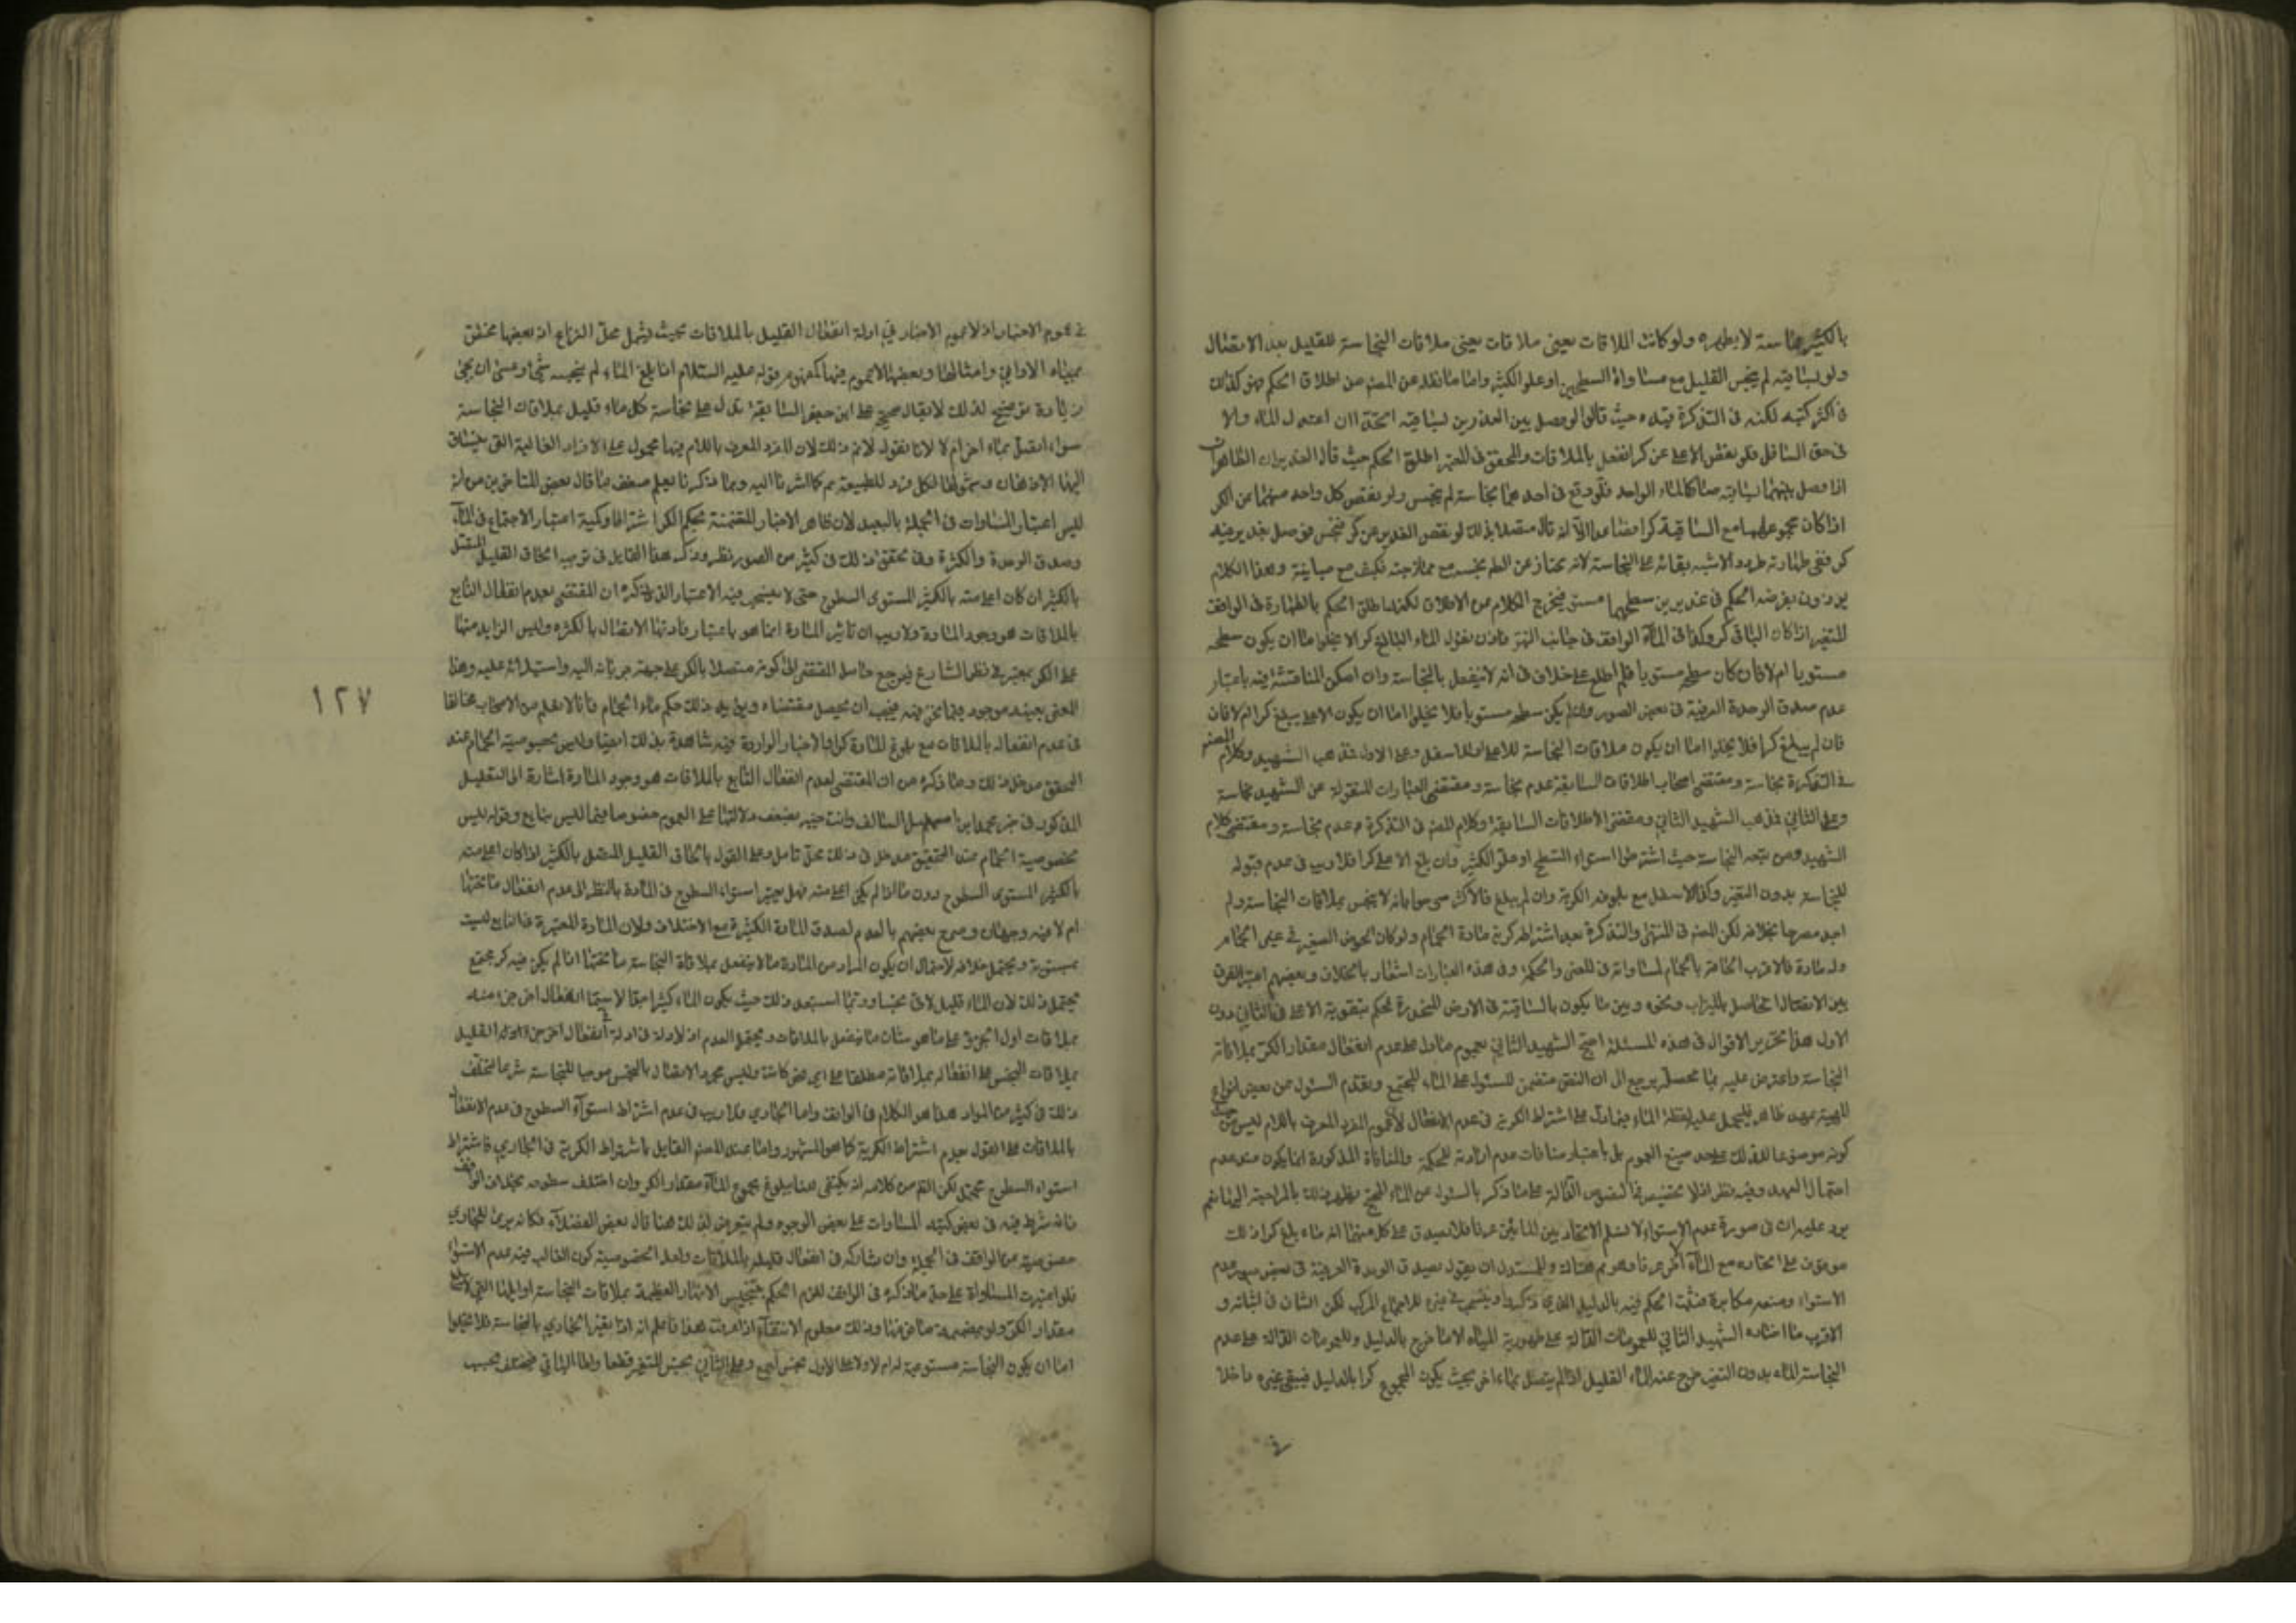 بالكثير مماسة لا يطهره ولو كانت الملاقات يعني ملاقات يعني ملاقات النجاسة للقليل بعد الاتصال
ولو بساقية لم ينجس القليل مع مساواة السطحين او علو الكثير واما ما نقله عن المعتبر من اطلاق الحكم فهو كذلك
في اكثر كتبه لكنه في التذكرة قيده حيث قال لو وصل بين الغديرين بساقية اتحدا ان اعتدل الماء والا
في حق السافل فلو نقص الاعلى عن كر انفعل بالملاقات والمحقق في المعتبر اطلق الحكم حيث قال الغديران الطاهران
اذا وصل بينهما بساقية صارا كالماء الواحد فلو وقع في احدهما نجاسة لم ينجس ولو نقص كل واحد منهما عن الكر
اذا كان مجموعهما مع الساقية كرا فصاعدا الا انه قال متصلا بذلك لو نقص الغدير عن كر فنجس فوصل بغدير فيه
كر ففي طهارته تردد والاشبه بقائه على النجاسة لانه ممتاز عن الطاهر ينجسه مع ممازجته فكيف مع مباينته وهذا الكلام
يوذن بفرضه الحكم في غديرين سطحهما مستو فيخرج الكلام من الاطلاق لكنه اطلق الحكم بالطهارة في الواقف
المتغير اذا كان الباقي كر وكذا في الماء الواقف في جانب النهر فاذن نقول الماء البالغ كر لا يخلوا اما ان يكون سطحه
مستويا ام لا فان كان سطحه مستويا فلم اطلع على خلاف في انه لا ينفعل بالنجاسة وان امكن المناقشة فيه باعتبار
عدم صدق الوحدة العرفية في بعض الصور وان لم يكن سطحه مستويا فلا يخلوا اما ان يكون الاعلى يبلغ كرا ام لا فان
فان لم يبلغ كرا فلا يخلوا اما ان يكون ملاقات النجاسة للاعلى او للاسفل وعلى الاول فمذهب الشهيد وكلام المعتبر
في التذكرة نجاسته ومقتضى اصحاب اطلاقات السابقة عدم نجاسته ومقتضى العبارات المنقولة عن الشهيد نجاسته
وعلى الثاني فمذهب الشهيد الثاني ومقتضى الاطلاقات السابقة وكلام المصنف في التذكرة عدم نجاسته ومقتضى كلام
الشهيد ومن تبعه النجاسة حيث اشترطوا استواء السطح او علو الكثير وان بلغ الاعلى كرا فلا ريب في عدم قبوله
للنجاسة بدون التغير وكذا الاسفل مع بلوغه الكرية وان لم يبلغ فالاكثر صرحوا بانه لا ينجس بملاقات النجاسة ولم
اجد مصرحا بخلافه لكن المصنف في المنتهى والتذكرة بعد اشتراط كرية مادة الحمام ولو كان الحوض الصغير في غير الحمام
وله مادة فالاقرب الحاقه بالحمام لمساواته في المعنى والحكمة وفي هذه العبارات اشعار بالخلاف وبعضهم اعتبر الفرق
بين الاتصال الحاصل بالميزاب ونحوه وبين ما يكون بالساقية في الارض المنحدرة فحكم بتقوية الاعلى في الثاني دون
الاول هذا تحرير الاقوال في هذه المسئلة احتج الشهيد الثاني بعموم ما دل على عدم انفعال مقدار الكر بملاقاة
النجاسة واعترض عليه بما محصله يرجع الى ان النص متضمن للسئول عن الماء المجتمع وتقدم السئول عن بعض انواع
كونه موضوعا للذلك على حد صيغ العموم بل باعتبار منافات عدم ارادته للحكمة والمنافاة المذكورة انما يكون عند عدم
احتمال العهد وفيه نظر اذ لا تخصيص في النصوص الدالة على ما ذكر بالسئول عن الماء المجتمع ويظهر ذلك بالمراجعة اليها نعم
يرد عليه ان في صورة عدم الاستواء لا نسلم الاتحاد بين المائين عرفا فلا يصدق على كل منهما انه ماء بلغ كرا اذ ذلك
موقوف على اتحاده مع الماء الاخر عرفا وهو ثم هناك وللمستدل ان يقول يصدق الوحدة العرفية في بعض صور عدم
الاستواء ومنعه مكابرة فثبت الحكم فيه بالدليل الذي ذكرنا وينسحب في غيره للاجماع المركب لكن الشان في اثباته و
الاقرب ما اختاره الشهيد الثاني للعمومات الدالة على طهورية المياه الا ما خرج بالدليل وللعمومات الدالة على عدم
النجاسة الماء بدون التغير خرج عنه الماء القليل اذا لم يتصل بماء اخر بحيث يكون المجموع كرا بالدليل فيبقى غيره داخلا
في
في عموم الاخبار اذ لا عموم الاخبار في ادلة انفعال القليل بالملاقات بحيث يشمل محل النزاع اذ بعضها مختص
بمياه الاواني وامثالها وبعضها لا عموم فيها كمفهوم قوله عليه السلام اذا بلغ الماء لم ينجسه شيء وعسى ان يجئ
زيادة توضيح لذلك لا يقال صحيحة على ابن جعفر السابقة تدل على نجاسة كل ماء قليل بملاقات النجاسة
سواء اتصل بماء اخر ام لا لانا نقول لا نم ذلك لان المفرد المعرف باللام فيها محمول على الافراد الغالبة التي ينساق
اليها الاذهان وشمولها لكل فرد للطبيعة ثم كما اشرنا اليه وبما ذكرنا يعلم ضعف ما قال بعض المتاخرين من انه
ليس اعتبار المساوات في الجملة بالبعيد لان ظاهر الاخبار المتضمنة لحكم الكر اشتراطا وكمية اعتبار الاجتماع في الماء
وصدق الوحدة والكثرة وفي تحقق ذلك في كثير من الصور نظر وذكر هذا القايل في توجيه الحاق القليل المتصل
بالكثير ان كان اعلى منه بالكثير المستوى السطوح حتى لا ينجس فيه الاعتبار الذي ذكره ان المقتضي لعدم انفعال التابع
بالملاقات هو وجود المادة ولا ريب ان تاثير المادة انما هو باعتبار فادتها الاتصال بالكثرة وليس الزايد منها
على الكر بمعتبر في نظر الشارع فيرجع حاصل المقتضي الى كونه متصلا بالكر على جهة جريانه اليه واستيلائه عليه وهذا
المعنى بعينه موجود فيما نحن فيه فيجب ان يحصل مقتضاه ويؤيد ذلك حكم ماء الحمام فانا لا نعلم من الاصحاب مخالفا
في عدم انفعاله بالملاقات مع بلوغ المادة كرا والاخبار الواردة فيه شاهدة بذلك ايضا وليس لخصوصية الحمام عند
المحقق مدخل في ذلك وما ذكره من ان المقتضي لعدم انفعال التابع بالملاقات هو وجود المادة اشارة الى التعليل
المذكور في خبر محمد ابن اسمعيل السالف وانت خبير بضعف دلالتها على العموم خصوصا فيما ليس بنابع وقوله ليس
لخصوصية الحمام عند التحقيق مدخل في ذلك محل تامل وعلى القول بالحاق القليل المتصل بالكثير اذا كان اعلى منه
بالكثير المستوى السطوح دون ما اذا لم يكن اعلى منه فهل يعتبر استواء السطوح في المادة بالنظر الى عدم انفعال ما تحتها
ام لا فيه وجهان وصرح بعضهم بالعدم لصدق المادة الكثيرة مع الاختلاف ولان المادة المعتبرة في النابع ليست
بمستوية ويحتمل خلافه لاحتمال ان يكون المراد من المادة ما لا ينفعل بملاقاة النجاسة ما تحتها اذا لم يكن فيه كر مجتمع
يحتمل ذلك لان الماء قليل لاقى نجسا وربما استبعد ذلك حيث يكون الماء كثيرا جدا لا سيما انفعال اخر جزء منه
بملاقات اول الجزء على ما هو شان ما ينفعل بالملاقات ويحتمل العدم اذ لا دلالة في ادلة انفعال
بملاقات النجس على انفعاله بملاقاته مطلقا على اي نحو كانت وليس مجرد الاتصال بالنجس موجبا للنجاسة شرعا لتخلف
ذلك في كثير من المواد هذا هو الكلام في الواقف واما الجاري فلا ريب في عدم اشتراط استواء السطوح في عدم الانفعال
بالملاقات على القول بعدم اشتراط الكرية كما هو المشهور واما عند المصنف القايل باشتراط الكرية في الجاري فاشتراط
استواء السطوح محتمل لكن الظاهر من كلامه انه يكتفي هنا ببلوغ مجموع الماء مقدار الكر وان اختلف سطوحه بخلاف الواقف
فانه شرط فيه في بعض كتبه المساوات على بعض الوجوه ولم يتعرض لذلك هنا قال بعض الفضلاء فكانه يرى للجاري
خصوصية عن الواقف في الجملة وان شاركه في انفعال قليله بالملاقات ولعل الخصوصية كون الغالب فيه عدم الاستوا
فلو اعتبرت المساواة على حد ما ذكره في الواقف للزم الحكم بتنجيس الانهار العظيمة بملاقات النجاسة اوايلها التي لا تبلغ
مقدار الكر ولو بضميمة ما فوقها وذلك معلوم الانتفاء اذا عرفت هذا فاعلم انه اذا تغير الجاري بالنجاسة فلا يخلوا
اما ان يكون النجاسة مستوعبة له ام لا وعلى الاول نجس اجمع وعلى الثاني نجس المتغير قطعا واما الباقي فيختلف بحسب
١٢٧